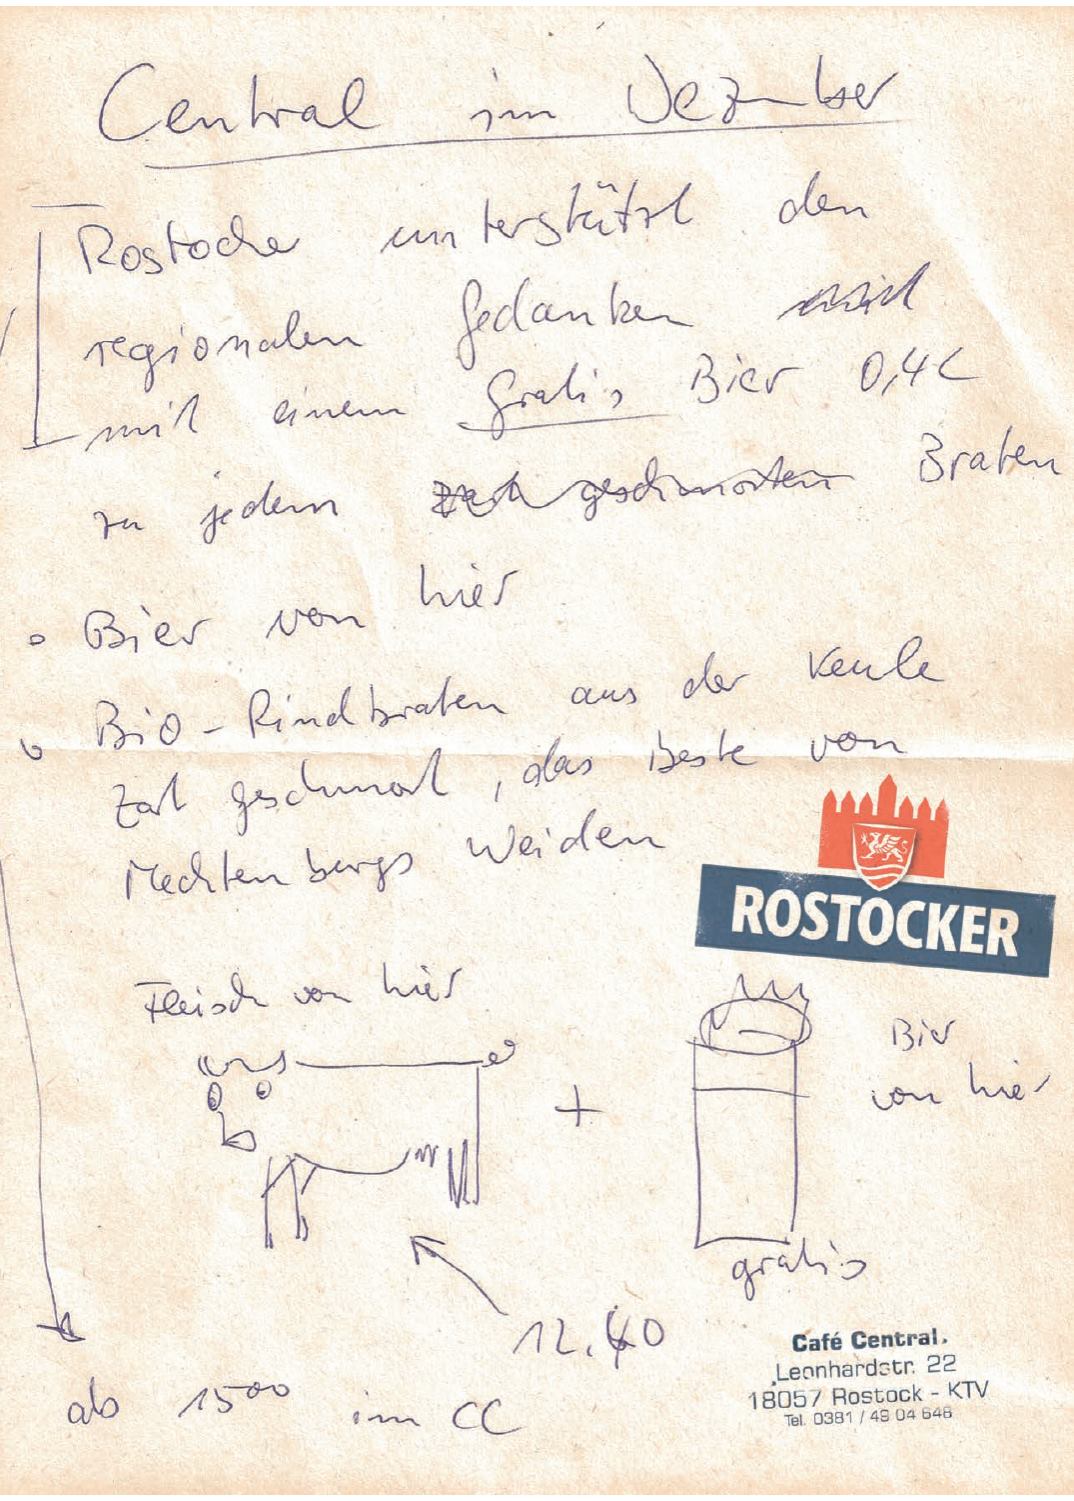 Central im Dezember
Rostocker unterstützt den
regionalen Gedanken mit
mit einem Gratis Bier 0,4L
zu jedem zart geschmorten Braten
Bier von hier
Bio-Rindbraten aus der Keule
zart geschmort, das Beste von
Mechtenbergs Weiden
ROSTOCKER
Fleisch von hier
Bier
von hier
+
gratis
12.40
Café Central.
Leonhardstr. 22
18057 Rostock - KTV
Tel. 0381 / 49 04 648
ab 15⁰⁰ im CC